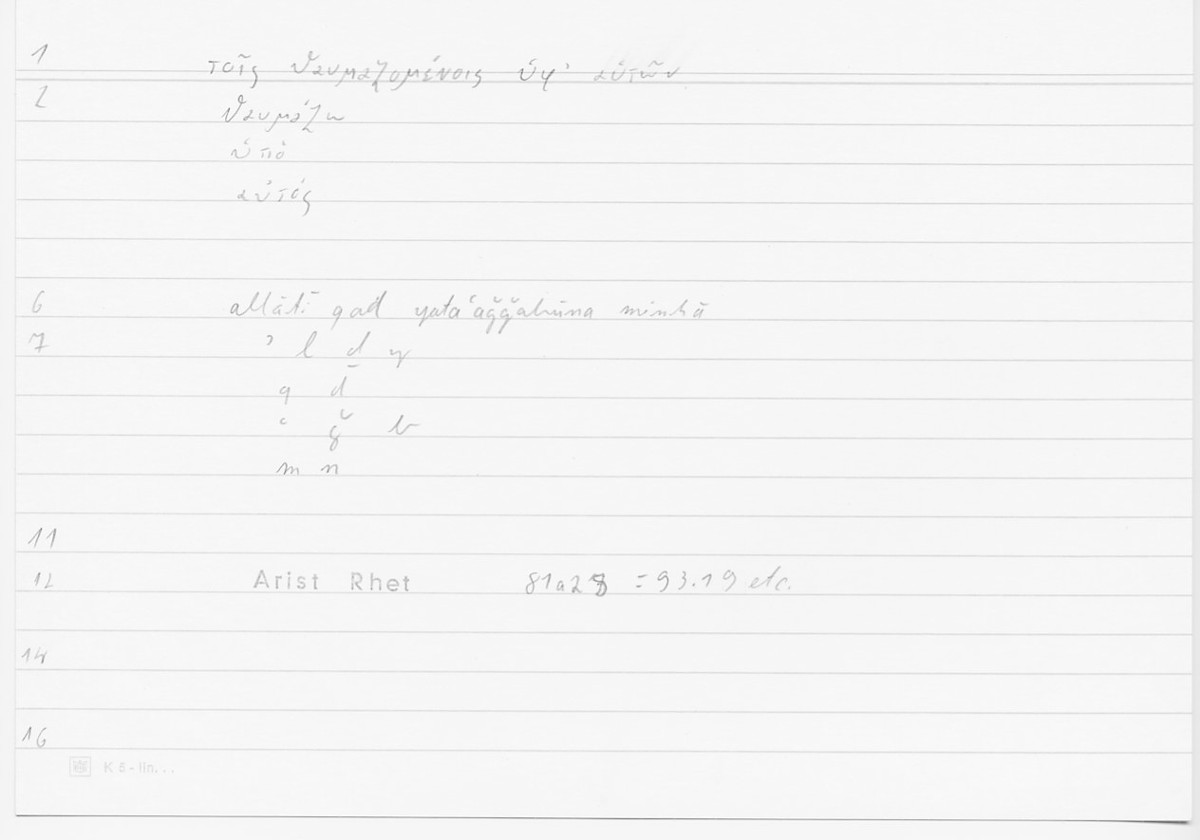 1 τοῖς θαυμαζομένοις ὑφ' αὑτῶν
2 θαυμάζω
ὑπό
αὑτός
6 allātī qad yataʿaǧǧabūna minhā
7 ʾ l ḏ y
q d
ʿ ǧ b
m n
11
12 Arist Rhet 81a28 = 93.19 etc.
14
16
K 5 - lin...